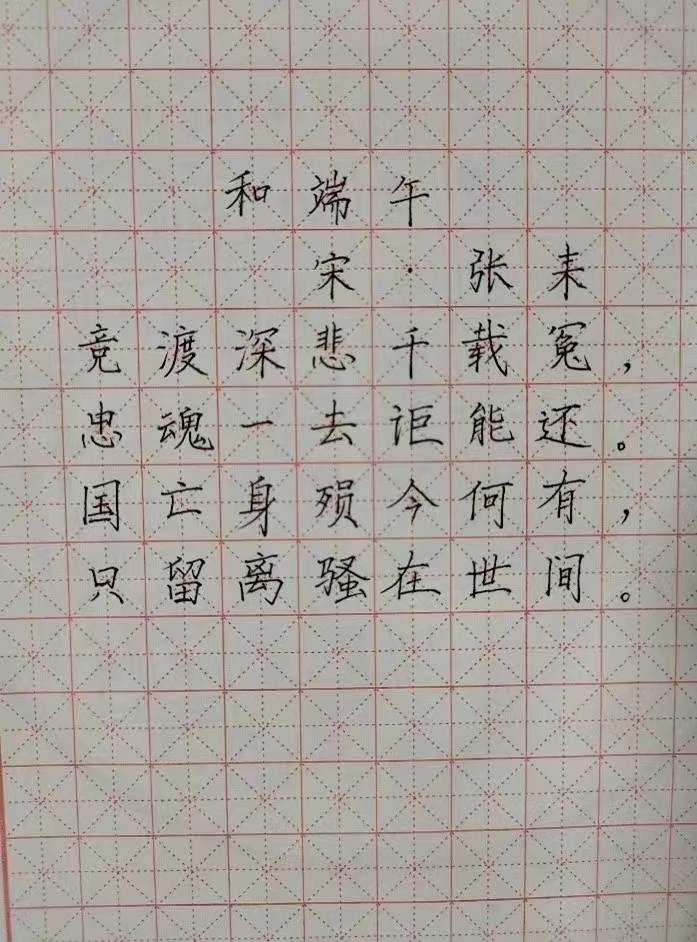 和端午
宋·张耒
竞渡深悲千载冤，
忠魂一去讵能还。
国亡身殒今何有，
只留离骚在世间。